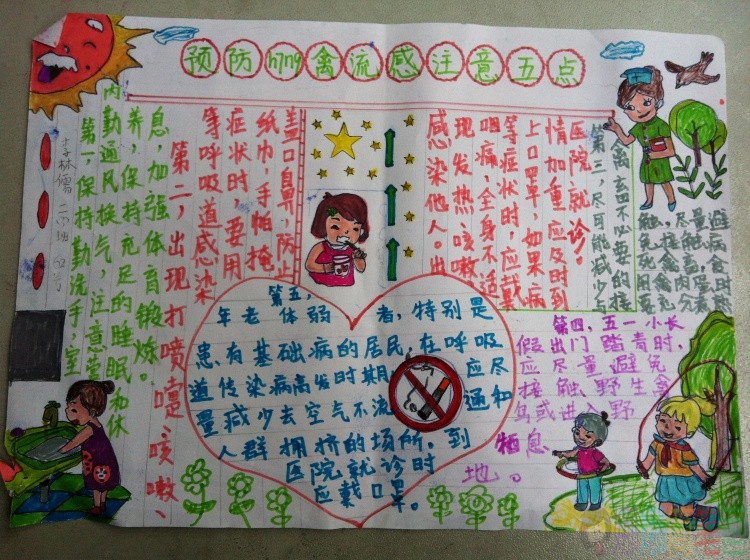 预防h7n9禽流感注意五点
第一，保持勤洗手，室
内勤通风换气，注意营
养，保持充足的睡眠和休
息，加强体育锻炼。
第二，出现打喷嚏、咳嗽、
等呼吸道感染
症状时，要用
纸巾，手帕掩
盖口鼻，防止
感染他人。出
现发热、咳嗽、
咽痛，全身不适
等症状时，应戴
上口罩，如果病
情加重应及时到
医院就诊。
第三，尽可能减少与
禽畜不必要的接
触，尽量避
免接触病
死禽畜，食
用禽肉蛋时
要充分煮熟
第四，五一小长
假出门踏青时，
应尽量避免
接触野生禽
鸟或进入野
栖息
地。
第五，
年老体弱者，特别是
患有基础病的居民，在呼吸
道传染病高发时期应尽
量减少去空气不流通和
人群拥挤的场所，到
医院就诊时
应戴口罩。